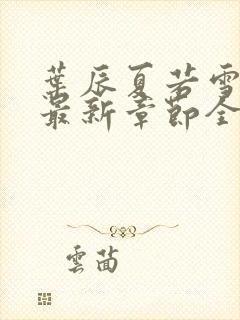 葉辰夏若雪
最新章節全
雲茴